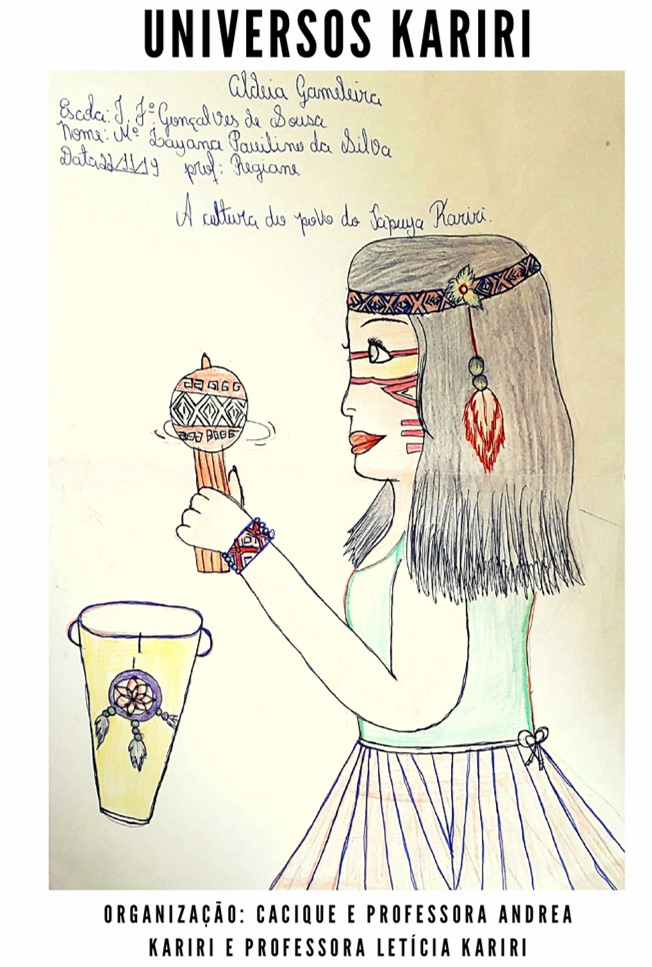 UNIVERSOS KARIRI
Aldeia Gameleira
Escola: J. Jº Gonçalves de Sousa
Nome: Mº Layana Paulino da Silva
Data 22/11/19 prof: Regiane
A cultura do povo do Tapuya Kariri.
ORGANIZAÇÃO: CACIQUE E PROFESSORA ANDREA
KARIRI E PROFESSORA LETÍCIA KARIRI